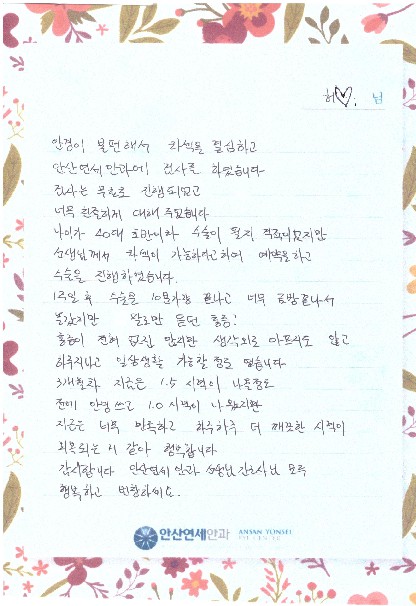 허♡. 님
안경이 불편해서 라섹을 결심하고
안산연세안과에 검사를 하였습니다
검사는 무료로 진행되었고
너무 친절하게 대해 주었습니다
나이가 40대 초반이라 수술이 될지 걱정되었지만
선생님께서 라섹이 가능하다고하여 예약을하고
수술을 진행하였습니다.
수술은 10분가량 끝나고 너무 금방끝나서
놀랐지만 말로만 듣던 통증!
통증이 전혀 없진 않지만 생각외로 아프지도 않고
하루지나고 일상생활 가능할 정도 였습니다
3개월차 지금은 1.5 시력이 나올정도
전에 안경쓰고 1.0 시력이 나왔지만
지금은 너무 만족하고 하루하루 더 깨끗한 시력이
회복되는 거 같아 행복합니다
감사합니다 안산연세안과 선생님 간호사님 모두
행복하고 번창하세요.
안산연세안과 ANSAN YONSEI
EYE CENTER